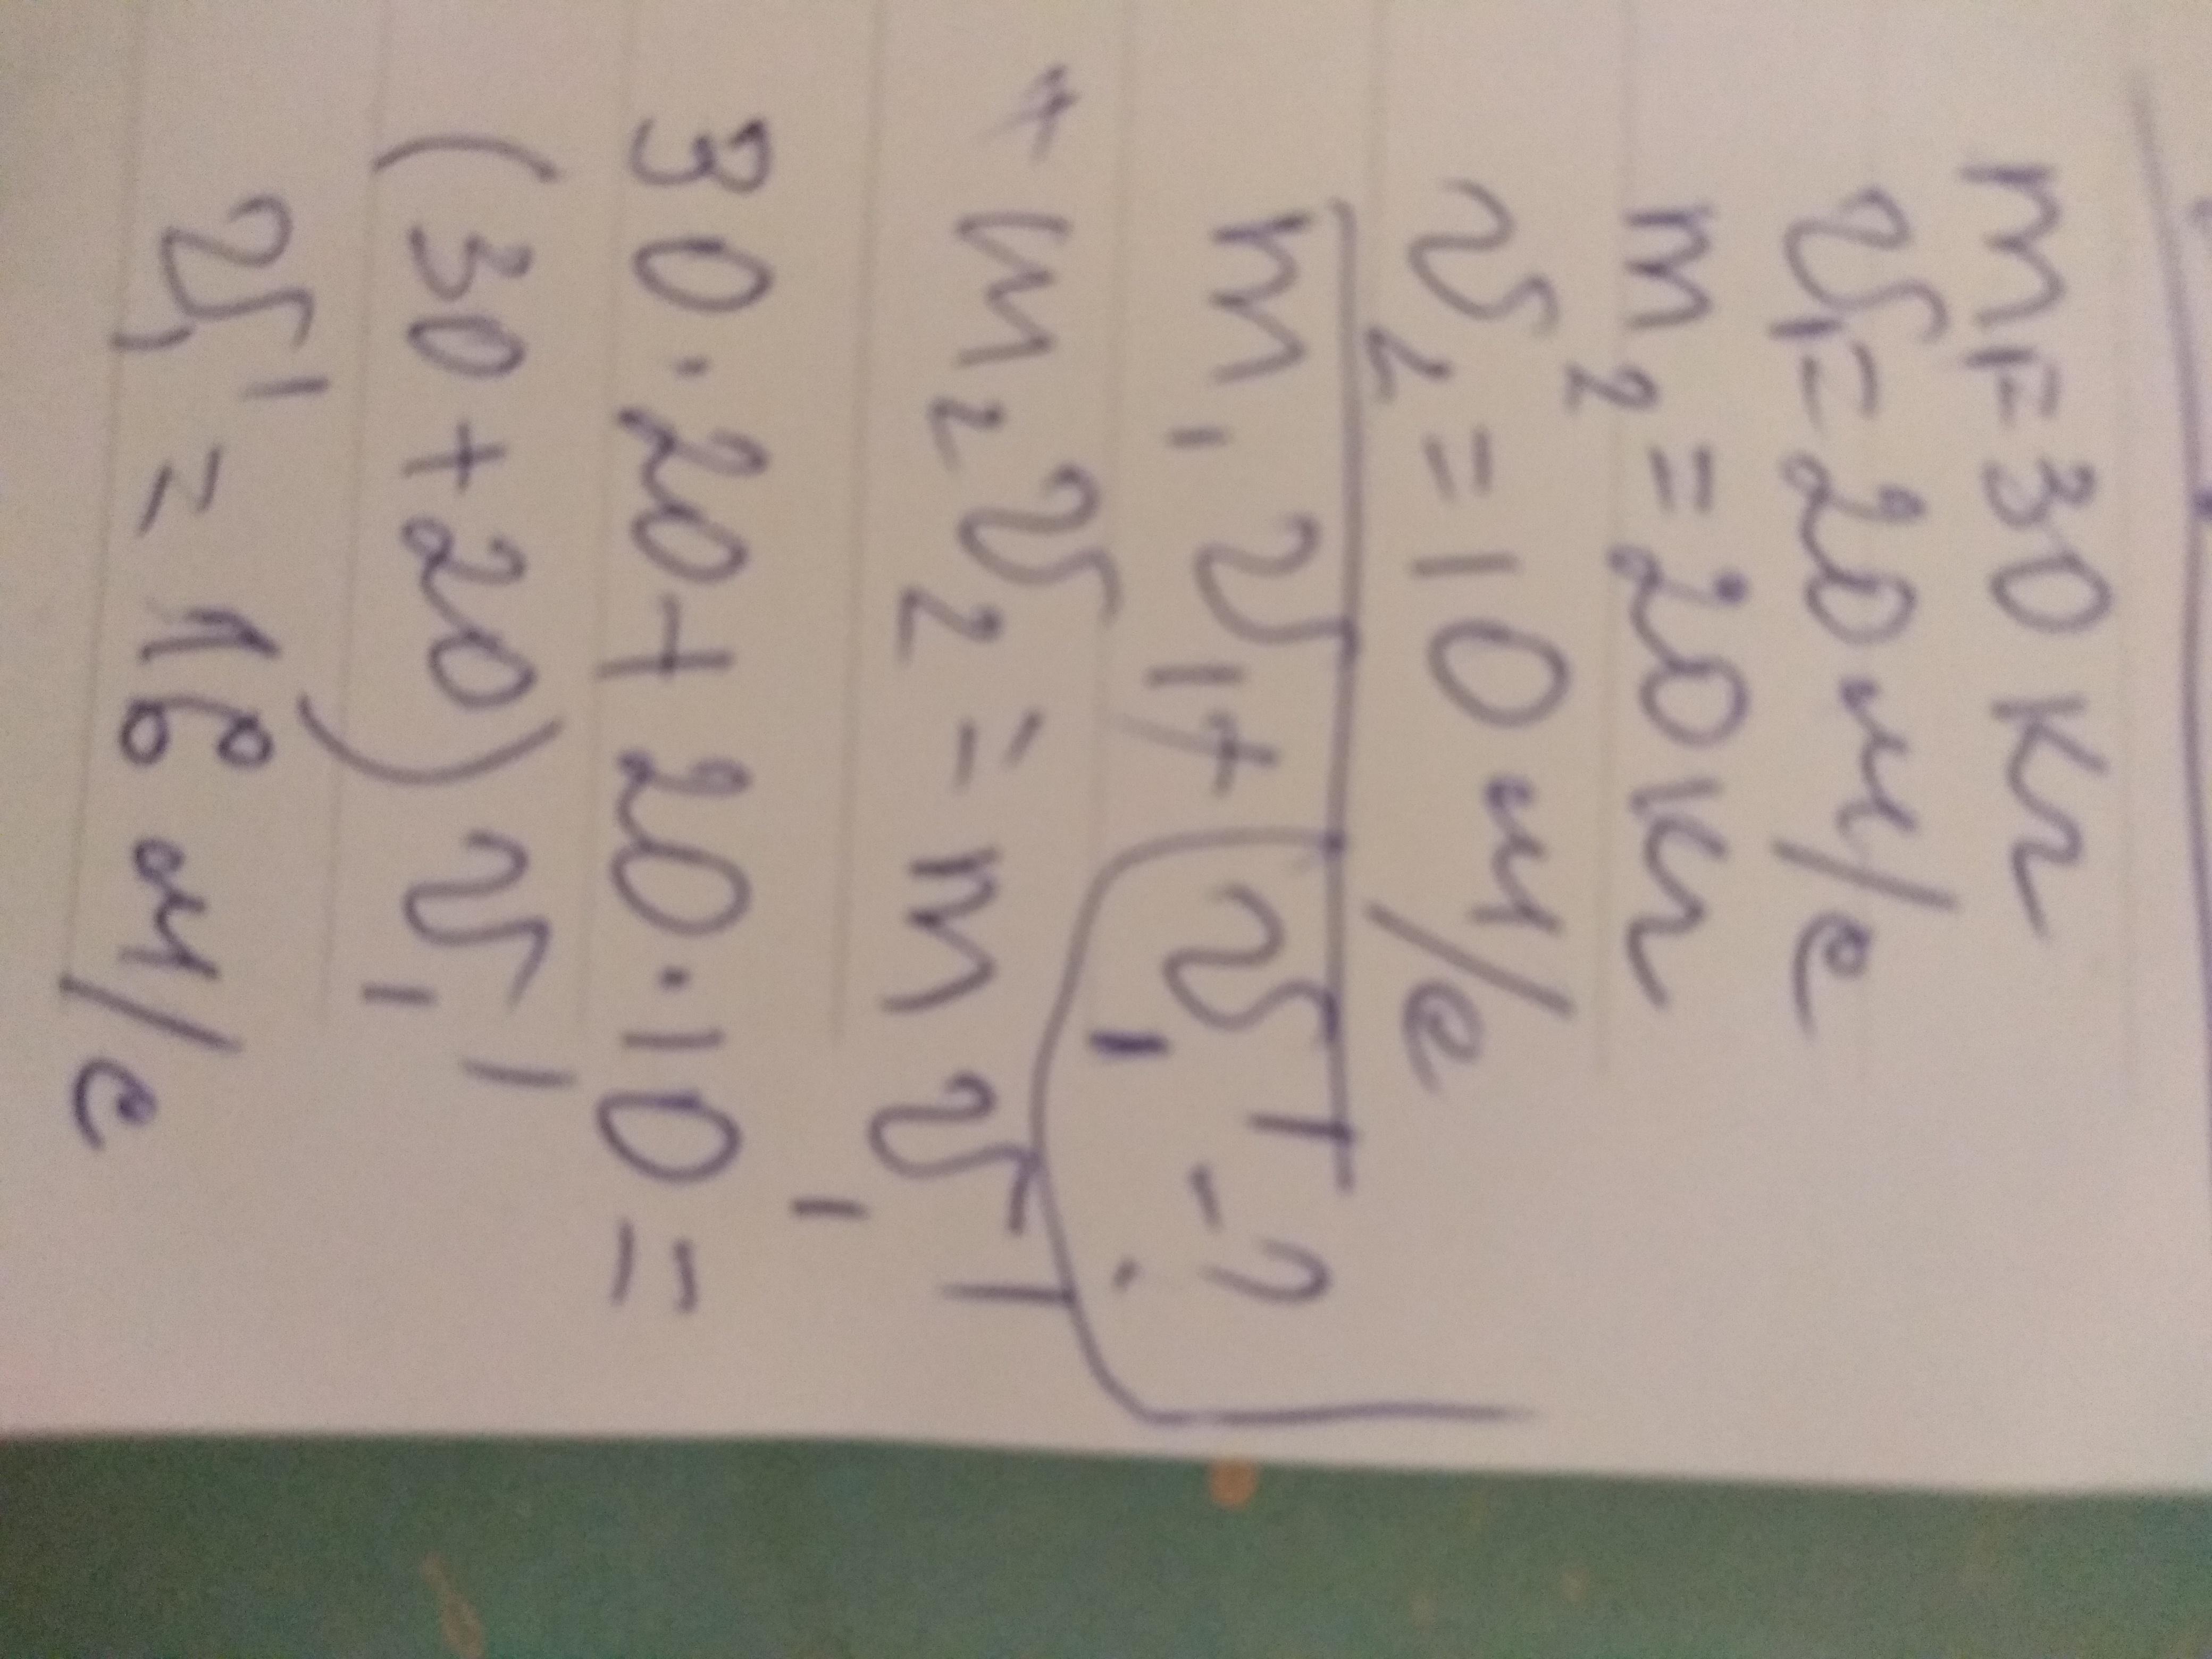 m₁=30 кг
v₁=20 м/с
m₂=20 кг
v₂=10 м/с
v₁'-?
m₁v₁+
+m₂v₂=m₁v₁'
30·20+20·10=
(30+20)v₁'
v₁'=16 м/с